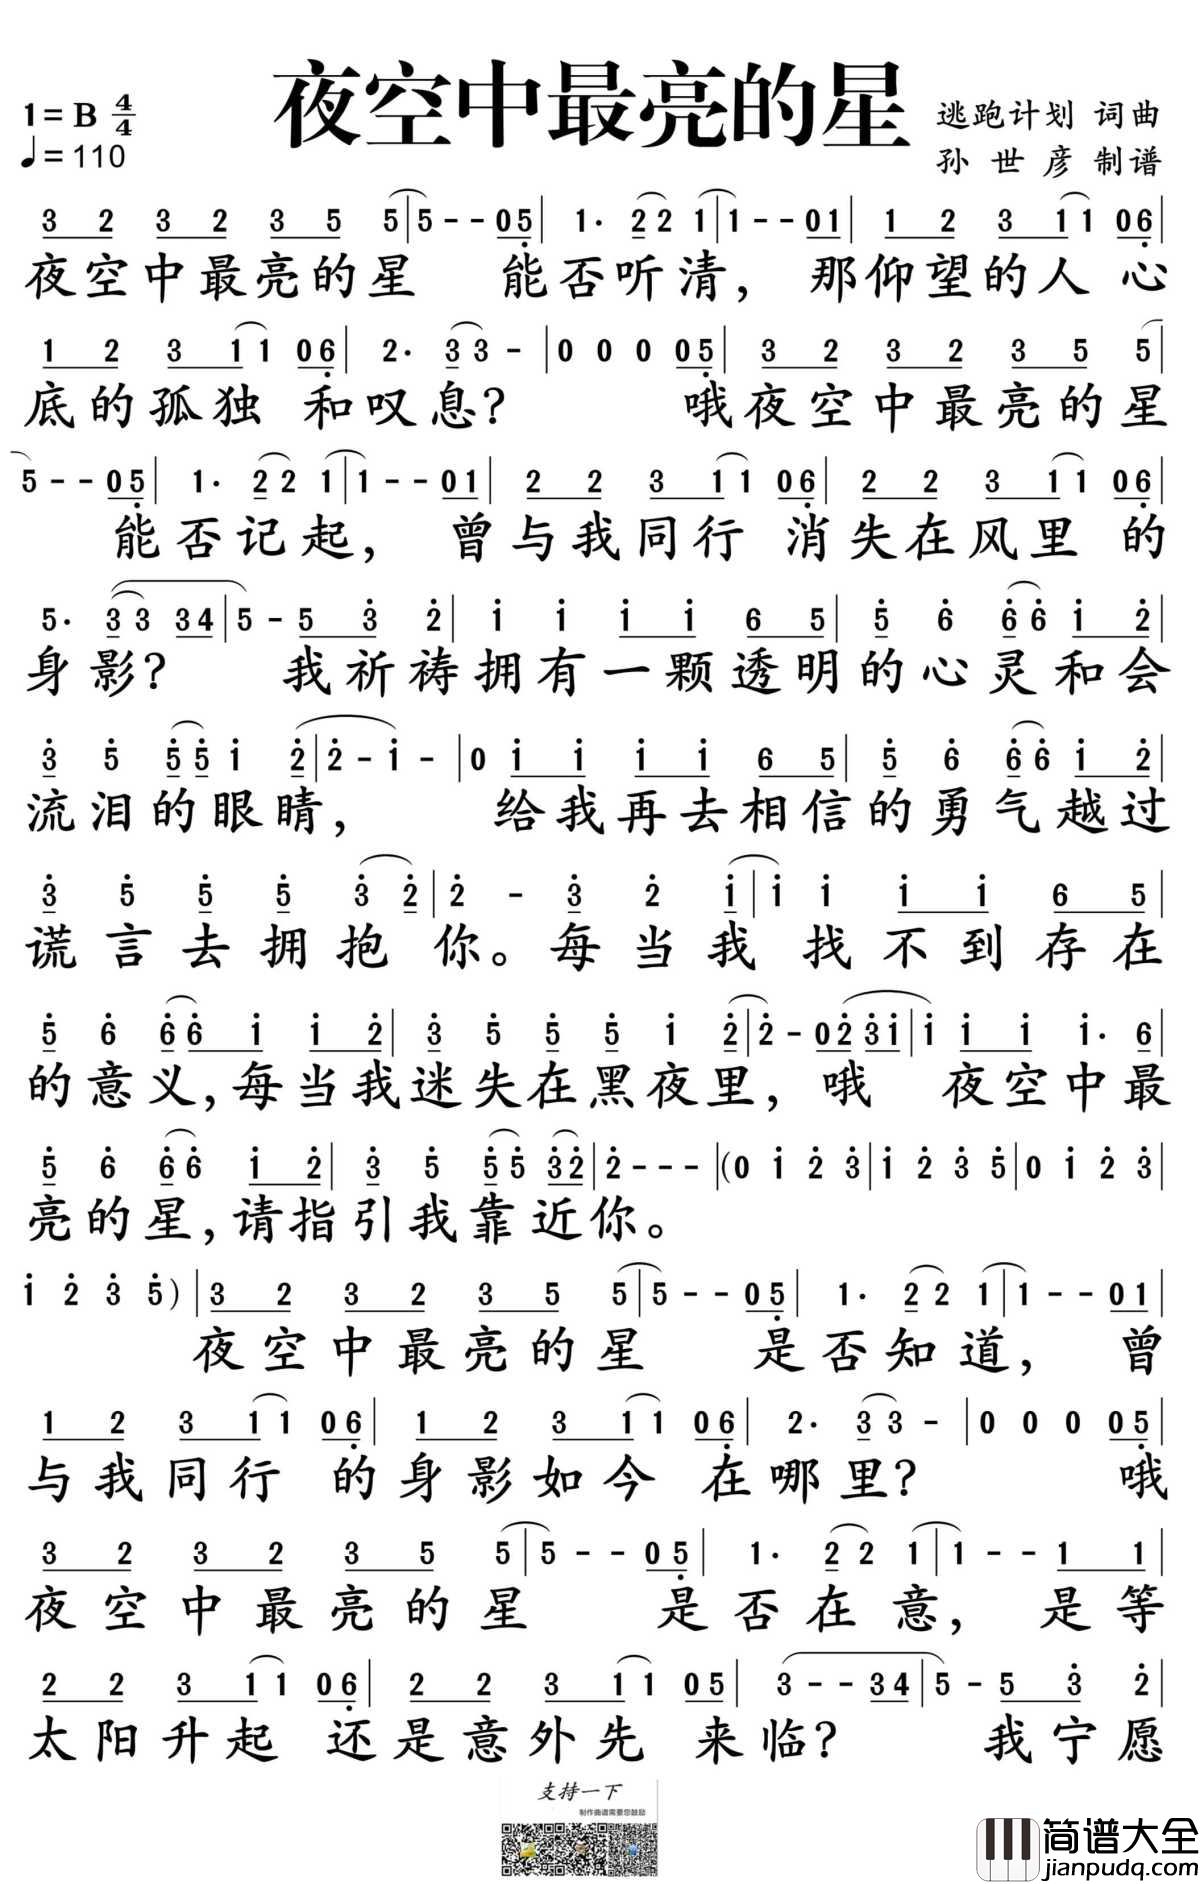 夜空中最亮的星
1=B 4/4
♩=110
逃跑计划 词曲
孙世彦 制谱
3 2 3 2 3 5 5|5 - - 05|1· 22 1|1 - - 01|1 2 3 11 06|
夜空中最亮的星 能否听清，那仰望的人 心
1 2 3 11 06|2· 33 -|0 0 0 05|3 2 3 2 3 5 5|
底的孤独 和叹息？ 哦夜空中最亮的星
5 - - 05|1· 22 1|1 - - 01|2 2 3 11 06|2 2 3 11 06|
能否记起，曾与我同行 消失在风里 的
5· 33 34|5 - 5 3 2|1 1 1 1 6 5|5 6 66 1 2|
身影？ 我祈祷拥有一颗透明的心灵和会
3 5 55 1 2|2 - 1 -|0 1 1 1 1 6 5|5 6 66 1 2|
流泪的眼睛， 给我再去相信的勇气越过
3 5 5 5 3 2|2 - 3 2 1|1 1 1 1 6 5|
谎言去拥抱你。每当我找不到存在
5 6 66 1 1 2|3 5 5 5 1 2|2 - 02 31|1 1 1 1· 6|
的意义，每当我迷失在黑夜里，哦 夜空中最
5 6 66 1 2|3 5 55 32|2 - - -|(0 1 2 3|1 2 3 5|0 1 2 3|
亮的星，请指引我靠近你。
1 2 3 5)|3 2 3 2 3 5 5|5 - - 05|1· 22 1|1 - - 01|
夜空中最亮的星 是否知道，曾
1 2 3 11 06|1 2 3 11 06|2· 33 -|0 0 0 05|
与我同行 的身影如今 在哪里？ 哦
3 2 3 2 3 5 5|5 - - 05|1· 22 1|1 - - 1 1|
夜空中最亮的星 是否在意，是等
2 2 3 11 06|2 2 3 11 05|3 - - 34|5 - 5 3 2|
太阳升起 还是意外先 来临？ 我宁愿
支持一下
制作曲谱需要您鼓励
简谱大全
jianpudq.com